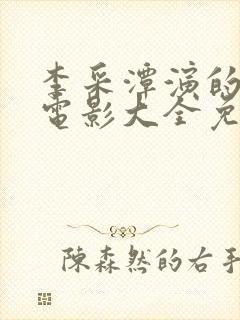 李采潭演的
電影大全免
陳森然的右手